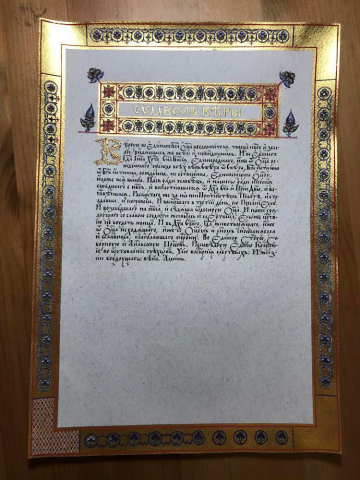 Вѣрую во Единаго Бга Оца вседержителя, творца нбу и зем
ли, видимымъ же всѣмъ и невидимымъ. И во Единаго
Гда Іиса Хрта Сна Бжія, Единороднаго, иже ѿ Оца
рожденнаго прежде всѣхъ вѣкъ. Свѣта ѿ Свѣта, Бга истинна ѿ
Бга истинна, рождена, не сотворена, единосущна Оцу,
имже вся быша. Насъ ради человѣкъ, и нашего ради спасенія
сшедшаго с нбсъ, и воплотившагося ѿ Дха Ста и Мріи Двы, и во
члвѣчшася. Распятаго же за ны при Понтійстѣмъ Пилатѣ, и стра
давша, и погребена. И воскресшаго въ третій день, по Писаніемъ.
И возшедшаго на нбса, и сѣдяща одесную Оца. И паки гря
дущаго со славою судити живымъ и мертвымъ, Егоже црт
вію не будетъ конца. И въ Дха Стаго, Гда животворящаго, иже
ѿ Оца исходящаго, иже со Оцемъ и Сномъ спокланяема
и сславима, глаголавшаго пророки. Во Едину Стую, Со
борную и Апостольскую Црковь. Исповѣдую Едино Крещеніе
во оставленіе грѣховъ. Чаю воскресенія мертвыхъ. И жиз
ни будущаго вѣка. Аминь.